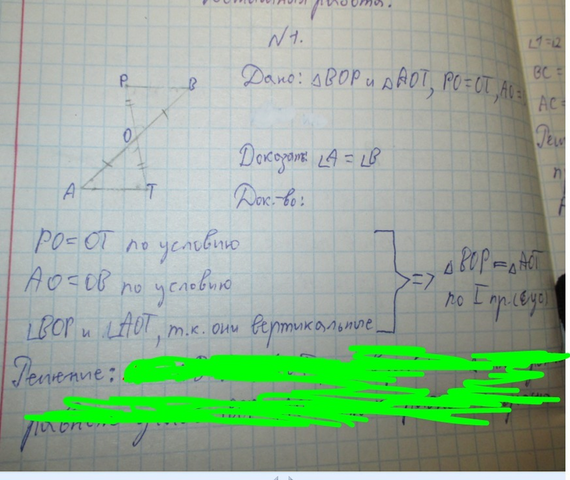 работа.
N1.
P B
O
A T
Дано: △BOP и △AOT, PO=OT, AO=
Доказать ∠A = ∠B
Док-во:
PO=OT по условию
AO=OB по условию
∠BOP и ∠AOT, т.к. они вертикальные
=> △BOP = △AOT
по I пр.
Решение:
BC =
AC =